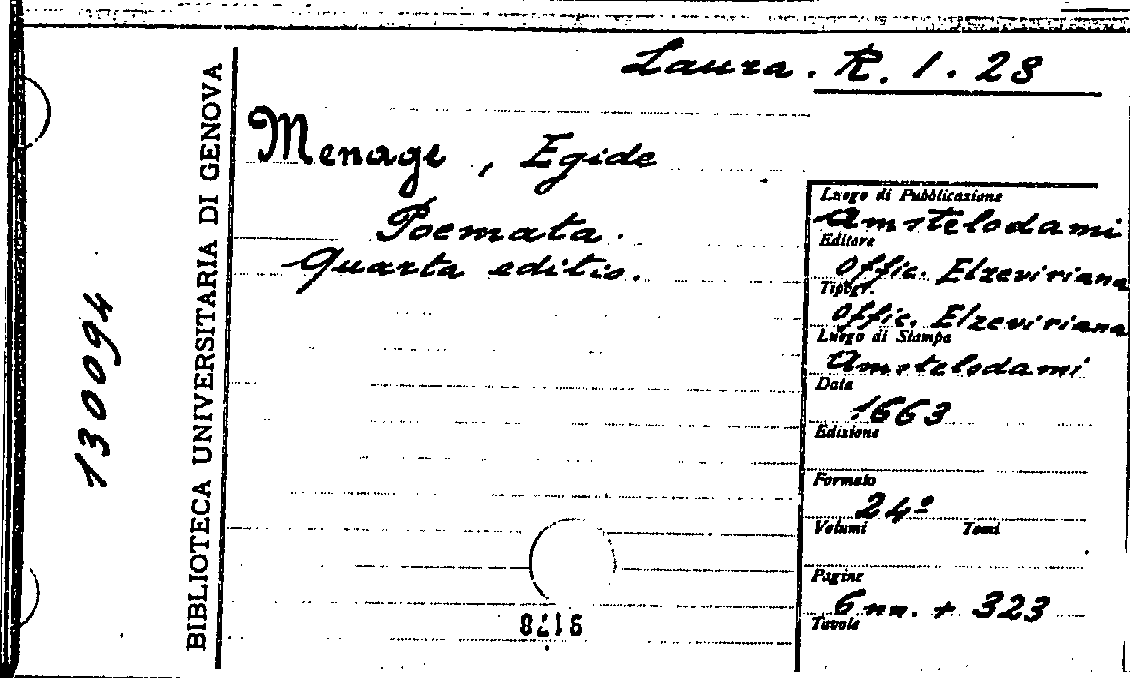 Laura. R. 1. 28
Menage, Egide
Poemata.
Quarta editio.
BIBLIOTECA UNIVERSITARIA DI GENOVA
130094
Luogo di Pubblicazione
Amstelodami
Editore
Offic. Elzeviriana
Tipogr.
Offic. Elzeviriana
Luogo di Stampa
Amstelodami
Data
1663
Edizione
Formato
24º
Volumi Tomi
Pagine
6 nn. + 323
Tavole